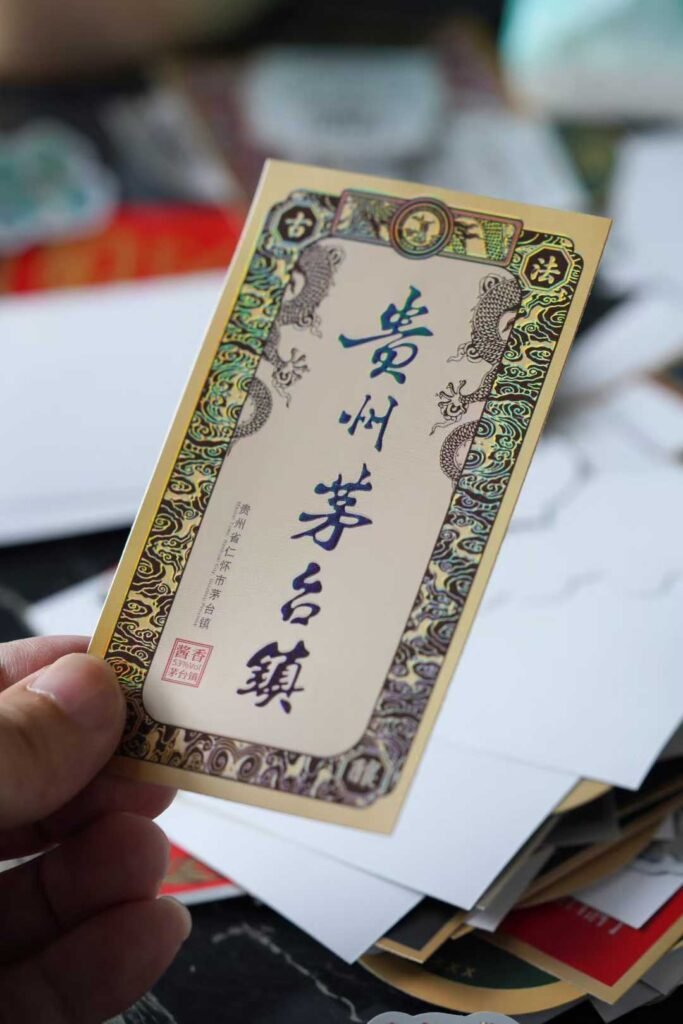 古
法
貴州茅台鎮
贵州省仁怀市茅台镇
酱香
53%Vol
茅台镇